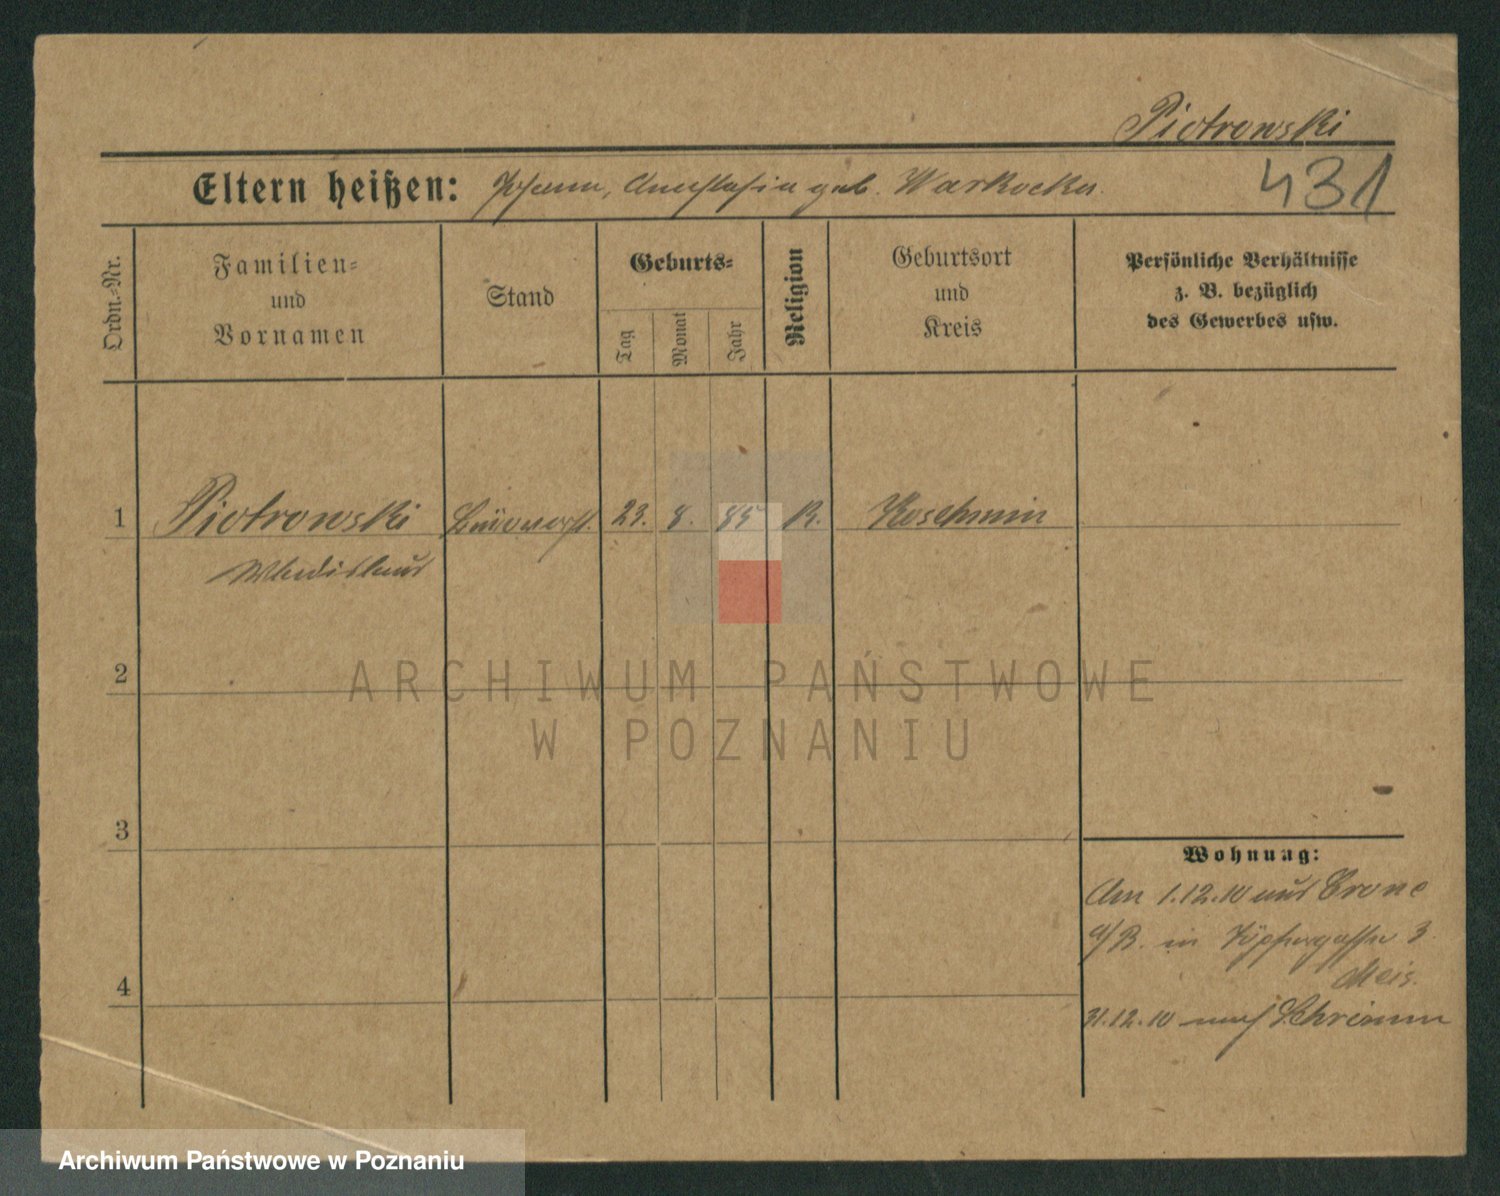 Piotrowski
Eltern heißen: Johann, Anastasia geb. Warkocka.
431
Ordn.-Nr.
Familien-
und
Vornamen
Stand
Geburts-
Tag
Monat
Jahr
Religion
Geburtsort
und
Kreis
Persönliche Verhältnisse
z. B. bezüglich
des Gewerbes usw.
1 Piotrowski 23. 8. 85 K. Koschmin
Wladislaus
2
3
4
Wohnung:
Am 1.12.10 aus Crone
a/B. in Töpfergasse 3
Meis.
31.12.10 nach Schrimm
ARCHIWUM PAŃSTWOWE
W POZNANIU
Archiwum Państwowe w Poznaniu